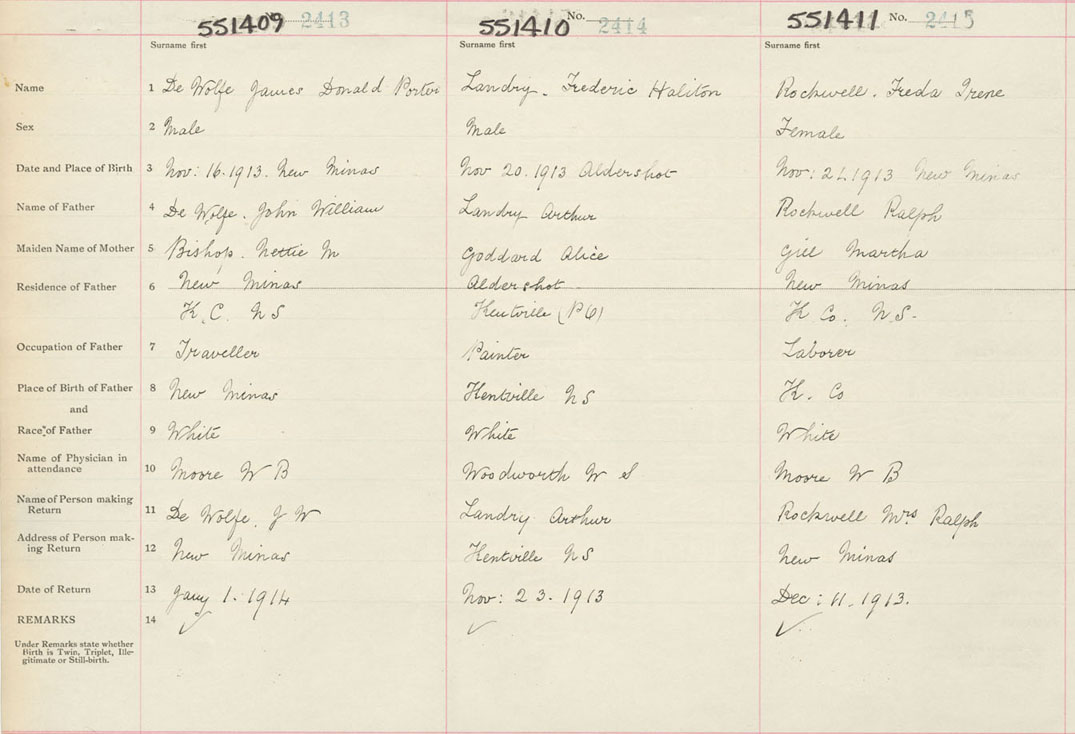 551409 2413 551410 No. 2414 551411 No. 2415
Surname first Surname first Surname first
Name 1 De Wolfe James Donald Porter Landry. Frederic Haliton Rockwell. Freda Irene
Sex 2 Male Male Female
Date and Place of Birth 3 Nov: 16.1913. New Minas Nov 20.1913 Aldershot Nov: 21.1913 New Minas
Name of Father 4 De Wolfe. John William Landry Arthur Rockwell Ralph
Maiden Name of Mother 5 Bishop. Nettie M Goddard Alice Gill Martha
Residence of Father 6 New Minas Aldershot New Minas
K. C. N S Kentville (P O) K Co. N.S.
Occupation of Father 7 Traveller Painter Laborer
Place of Birth of Father 8 New Minas Kentville N S K. Co
and
Race of Father 9 White White White
Name of Physician in
attendance 10 Moore W B Woodworth W S Moore W B
Name of Person making
Return 11 De Wolfe. J W Landry Arthur Rockwell Mrs Ralph
Address of Person mak-
ing Return 12 New Minas Kentville N S New Minas
Date of Return 13 Jany 1. 1914 Nov: 23.1913 Dec: 11.1913.
REMARKS 14
Under Remarks state whether
Birth is Twin, Triplet, Ille-
gitimate or Still-birth.